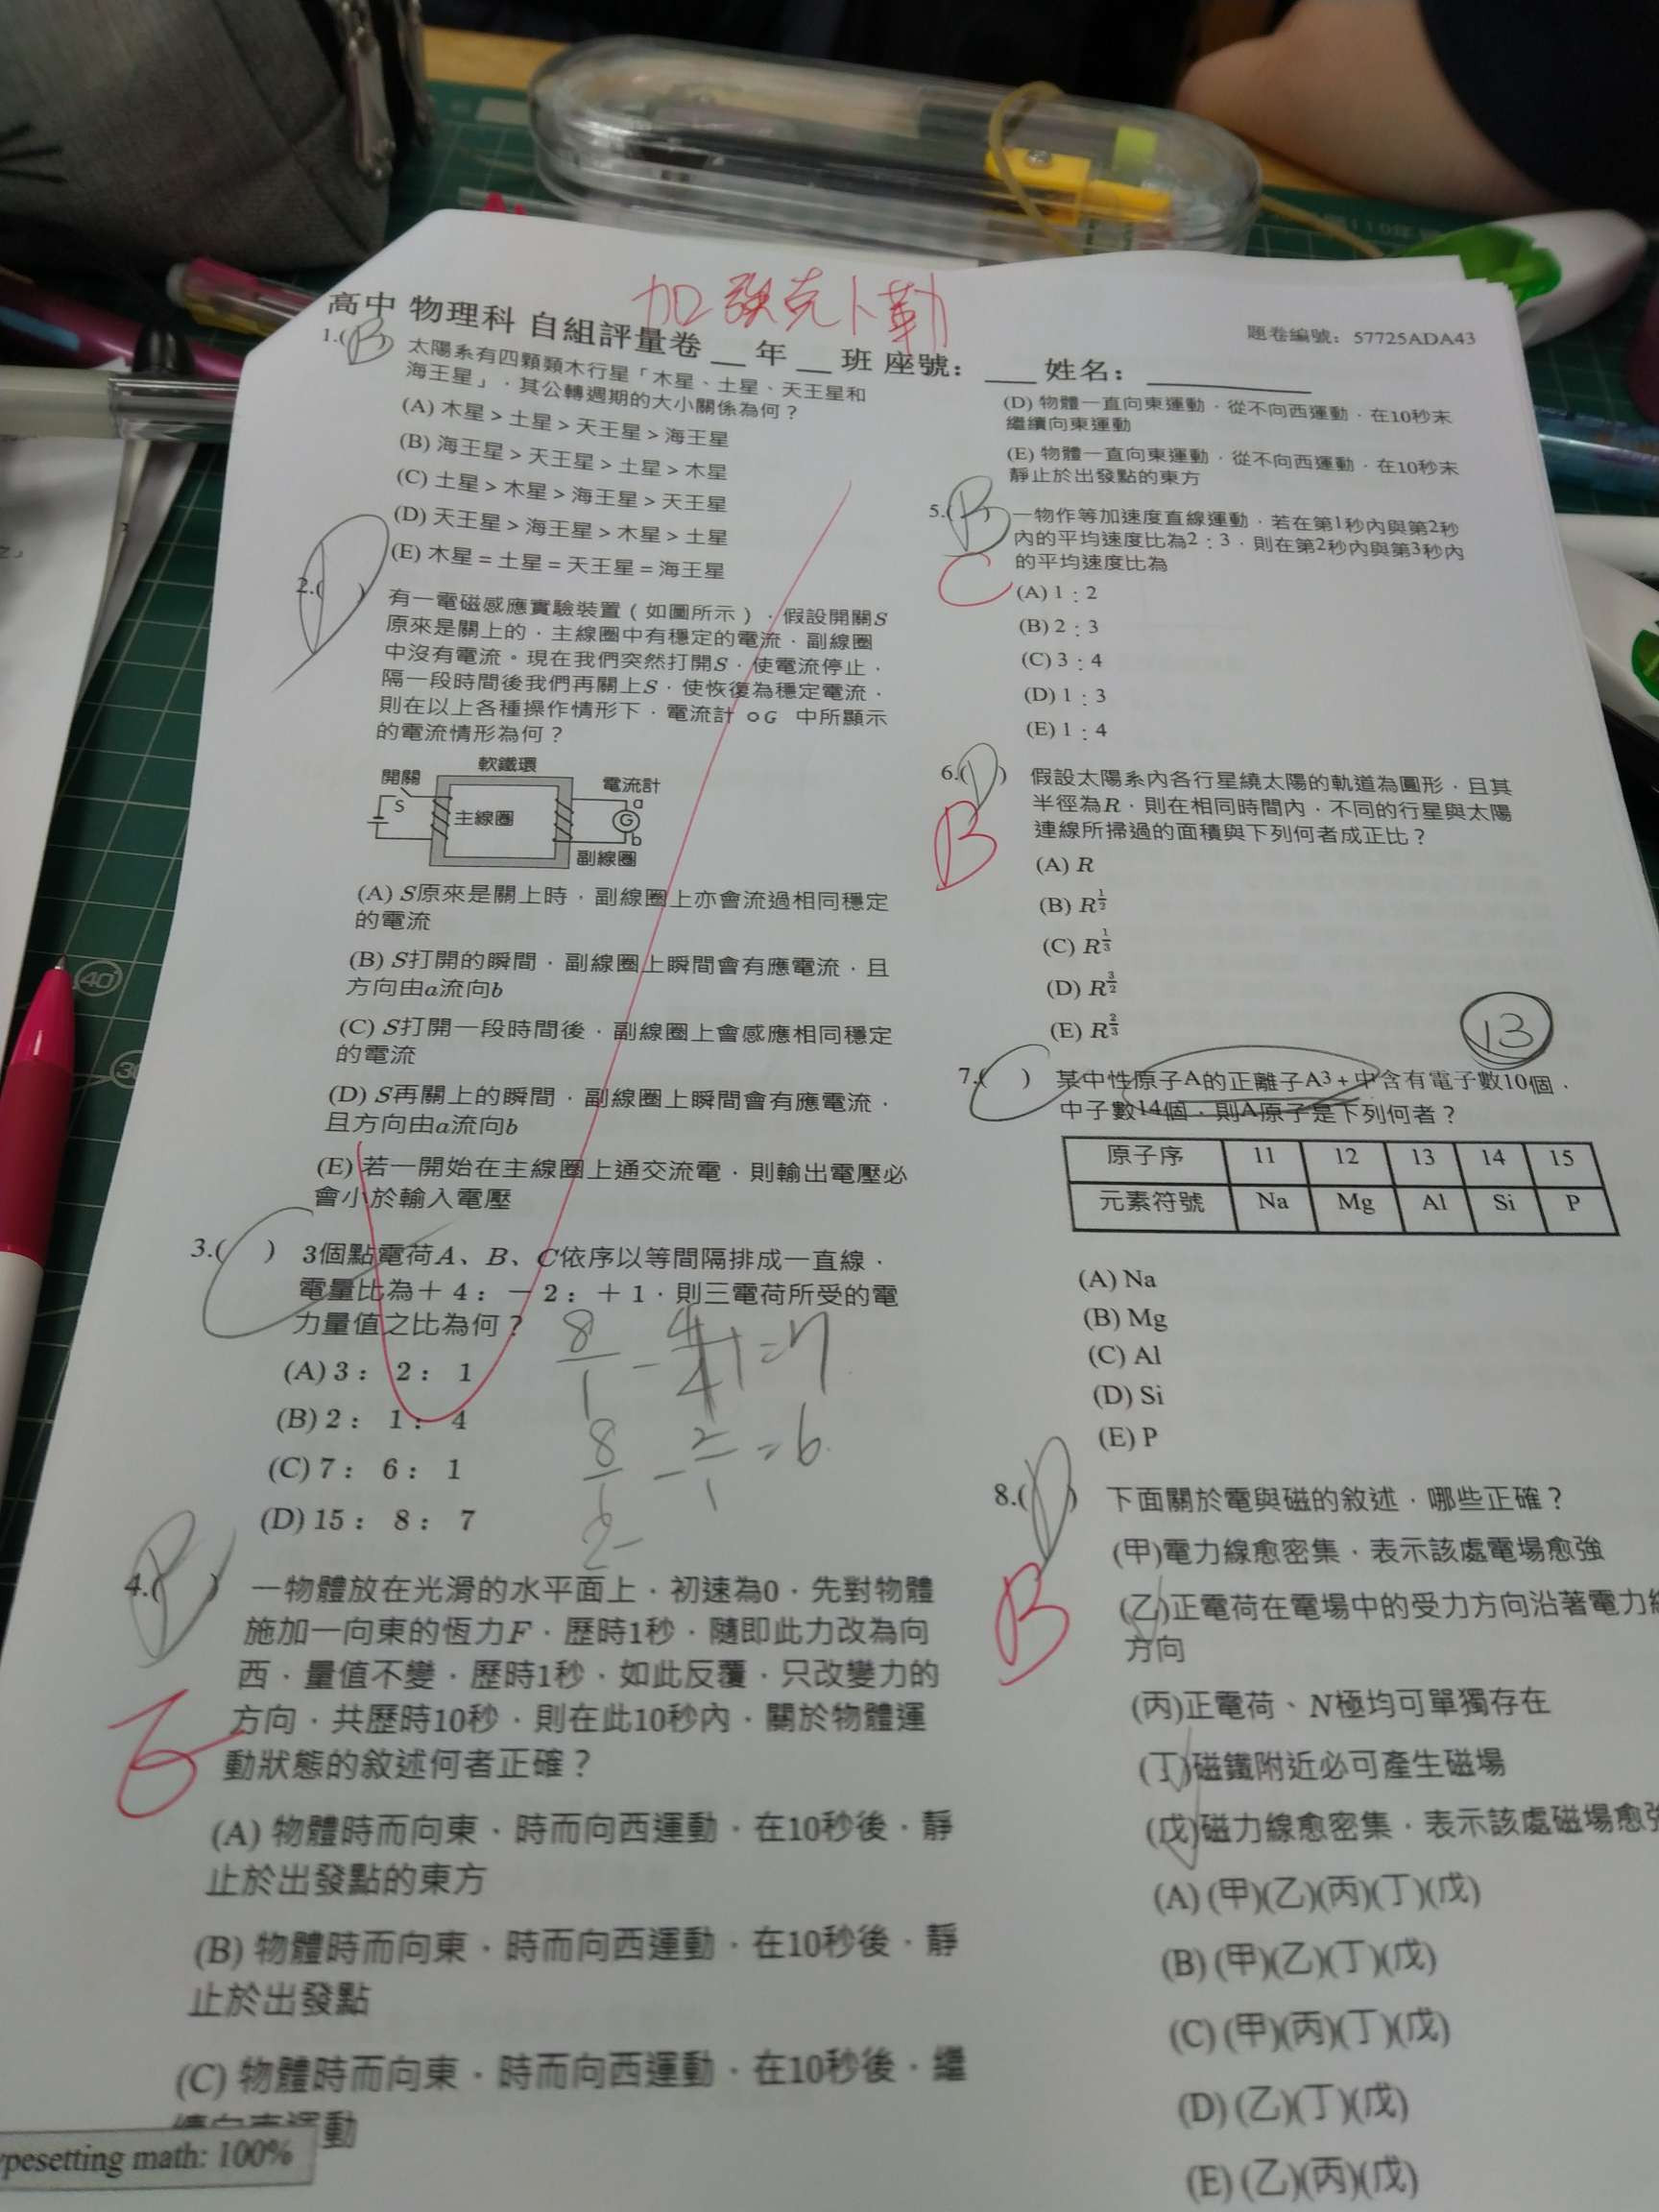 加強克卜勒
高中 物理科 自組評量卷 __ 年 __ 班 座號： ___ 姓名： ________
題卷編號：57725ADA43
1.(B) 太陽系有四顆類木行星「木星、土星、天王星和
海王星」，其公轉週期的大小關係為何？
(A) 木星 > 土星 > 天王星 > 海王星
(B) 海王星 > 天王星 > 土星 > 木星
(C) 土星 > 木星 > 海王星 > 天王星
(D) 天王星 > 海王星 > 木星 > 土星
(E) 木星 = 土星 = 天王星 = 海王星
2.(D) 有一電磁感應實驗裝置（如圖所示），假設開關S
原來是關上的，主線圈中有穩定的電流，副線圈
中沒有電流。現在我們突然打開S，使電流停止，
隔一段時間後我們再關上S，使恢復為穩定電流，
則在以上各種操作情形下，電流計 oG 中所顯示
的電流情形為何？
開關
軟鐵環
電流計
S
主線圈
a
G
b
副線圈
(A) S原來是關上時，副線圈上亦會流過相同穩定
的電流
(B) S打開的瞬間，副線圈上瞬間會有應電流，且
方向由a流向b
(C) S打開一段時間後，副線圈上會感應相同穩定
的電流
(D) S再關上的瞬間，副線圈上瞬間會有應電流，
且方向由a流向b
(E) 若一開始在主線圈上通交流電，則輸出電壓必
會小於輸入電壓
3.(C) 3個點電荷A、B、C依序以等間隔排成一直線，
電量比為＋4：－2：＋1，則三電荷所受的電
力量值之比為何？
(A) 3： 2： 1
(B) 2： 1： 4
(C) 7： 6： 1
(D) 15： 8： 7
8/1 - 4/4 1 = 7
8/1 - 2/1 = 6
2-
4.(D) 一物體放在光滑的水平面上，初速為0，先對物體
施加一向東的恆力F，歷時1秒，隨即此力改為向
西，量值不變，歷時1秒，如此反覆，只改變力的
方向，共歷時10秒，則在此10秒內，關於物體運
動狀態的敘述何者正確？
E
(A) 物體時而向東，時而向西運動，在10秒後，靜
止於出發點的東方
(B) 物體時而向東，時而向西運動，在10秒後，靜
止於出發點
(C) 物體時而向東，時而向西運動，在10秒後，繼
續向東運動
ypesetting math: 100%
(D) 物體一直向東運動，從不向西運動，在10秒末
繼續向東運動
(E) 物體一直向東運動，從不向西運動，在10秒末
靜止於出發點的東方
5.(B) 一物作等加速度直線運動，若在第1秒內與第2秒
內的平均速度比為2：3，則在第2秒內與第3秒內
的平均速度比為
C
(A) 1：2
(B) 2：3
(C) 3：4
(D) 1：3
(E) 1：4
6.(D) 假設太陽系內各行星繞太陽的軌道為圓形，且其
半徑為R，則在相同時間內，不同的行星與太陽
連線所掃過的面積與下列何者成正比？
B
(A) R
(B) R^1/2
(C) R^1/3
(D) R^3/2
(E) R^2/3
13
7.(C) 某中性原子A的正離子A3+中含有電子數10個，
中子數14個，則A原子是下列何者？
原子序 11 12 13 14 15
元素符號 Na Mg Al Si P
(A) Na
(B) Mg
(C) Al
(D) Si
(E) P
8.(D) 下面關於電與磁的敘述，哪些正確？
B
(甲)電力線愈密集，表示該處電場愈強
(乙)正電荷在電場中的受力方向沿著電力
方向
(丙)正電荷、N極均可單獨存在
(丁)磁鐵附近必可產生磁場
(戊)磁力線愈密集，表示該處磁場愈強
(A) (甲)(乙)(丙)(丁)(戊)
(B) (甲)(乙)(丁)(戊)
(C) (甲)(丙)(丁)(戊)
(D) (乙)(丁)(戊)
(E) (乙)(丙)(戊)